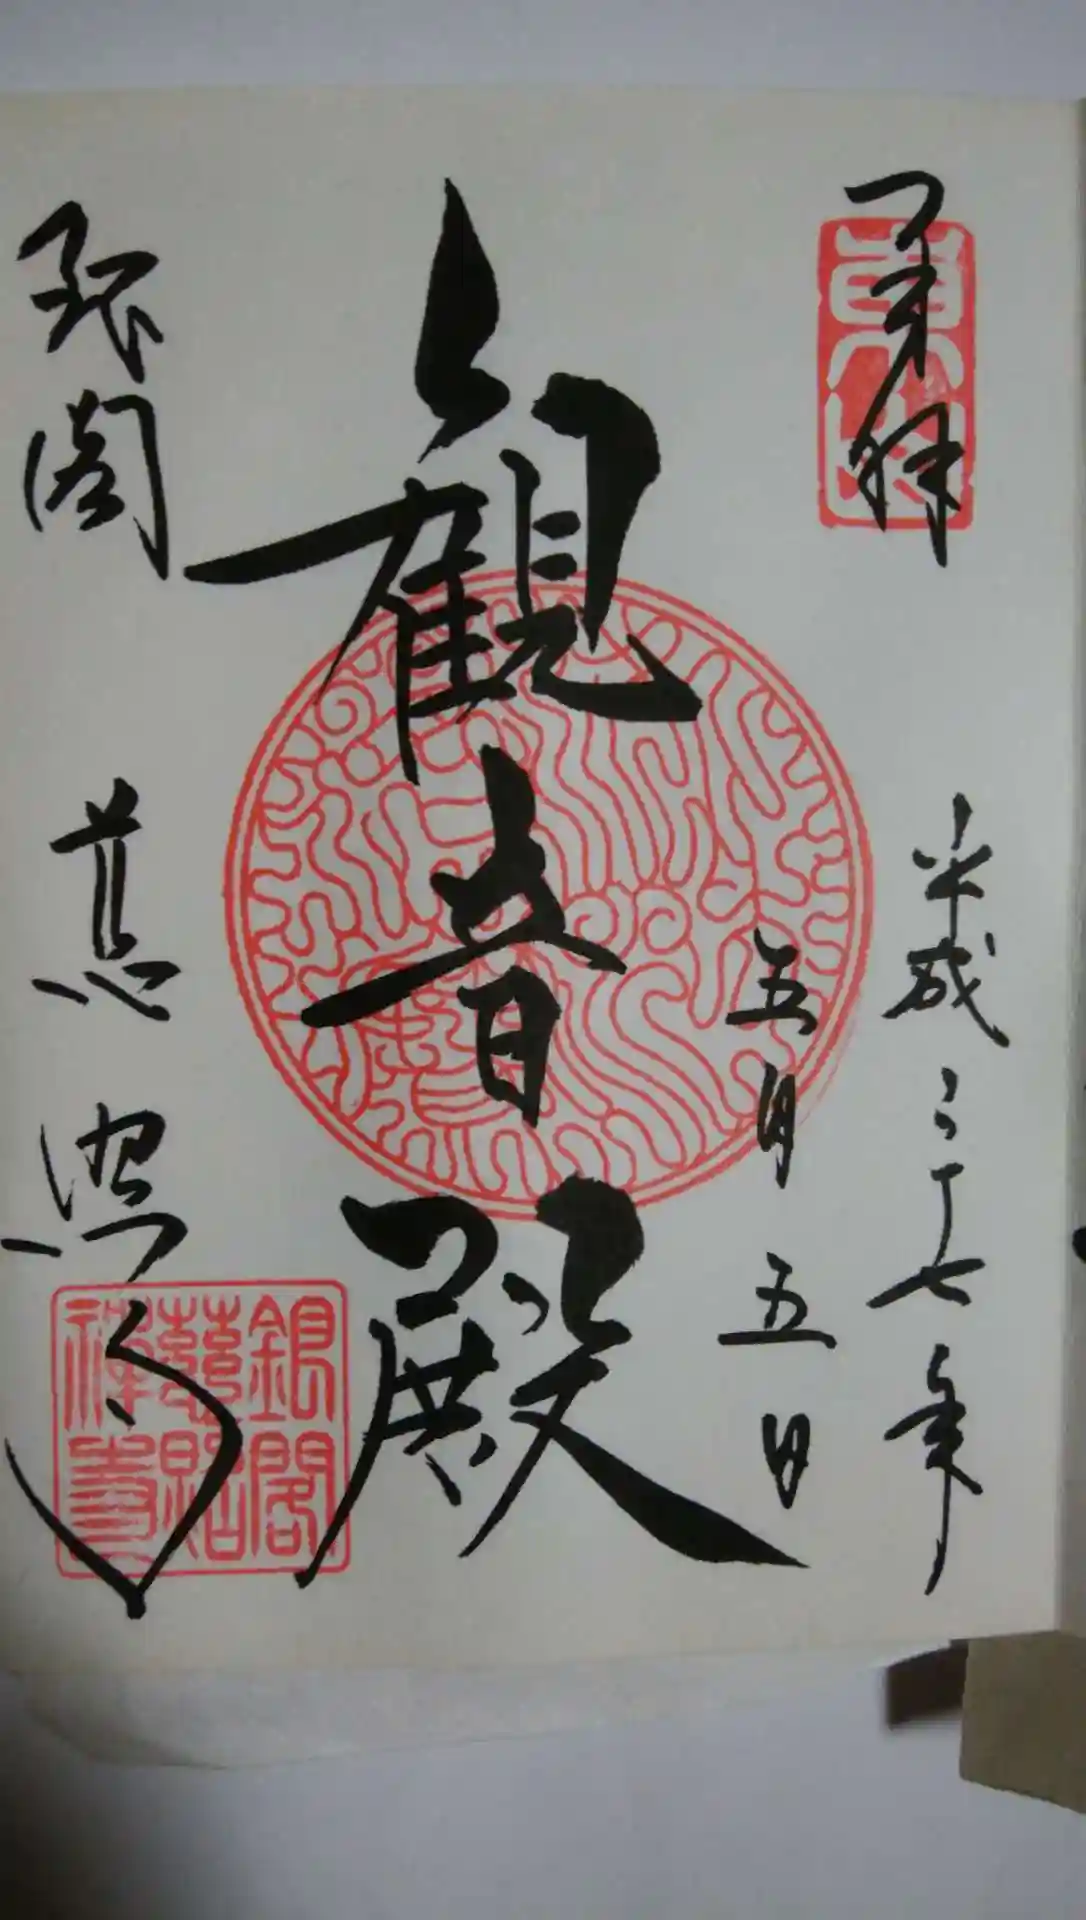 奉拝
東山
平成二十七年
五月五日
観音殿
銀閣
慈照寺
銀閣
慈照
禅寺